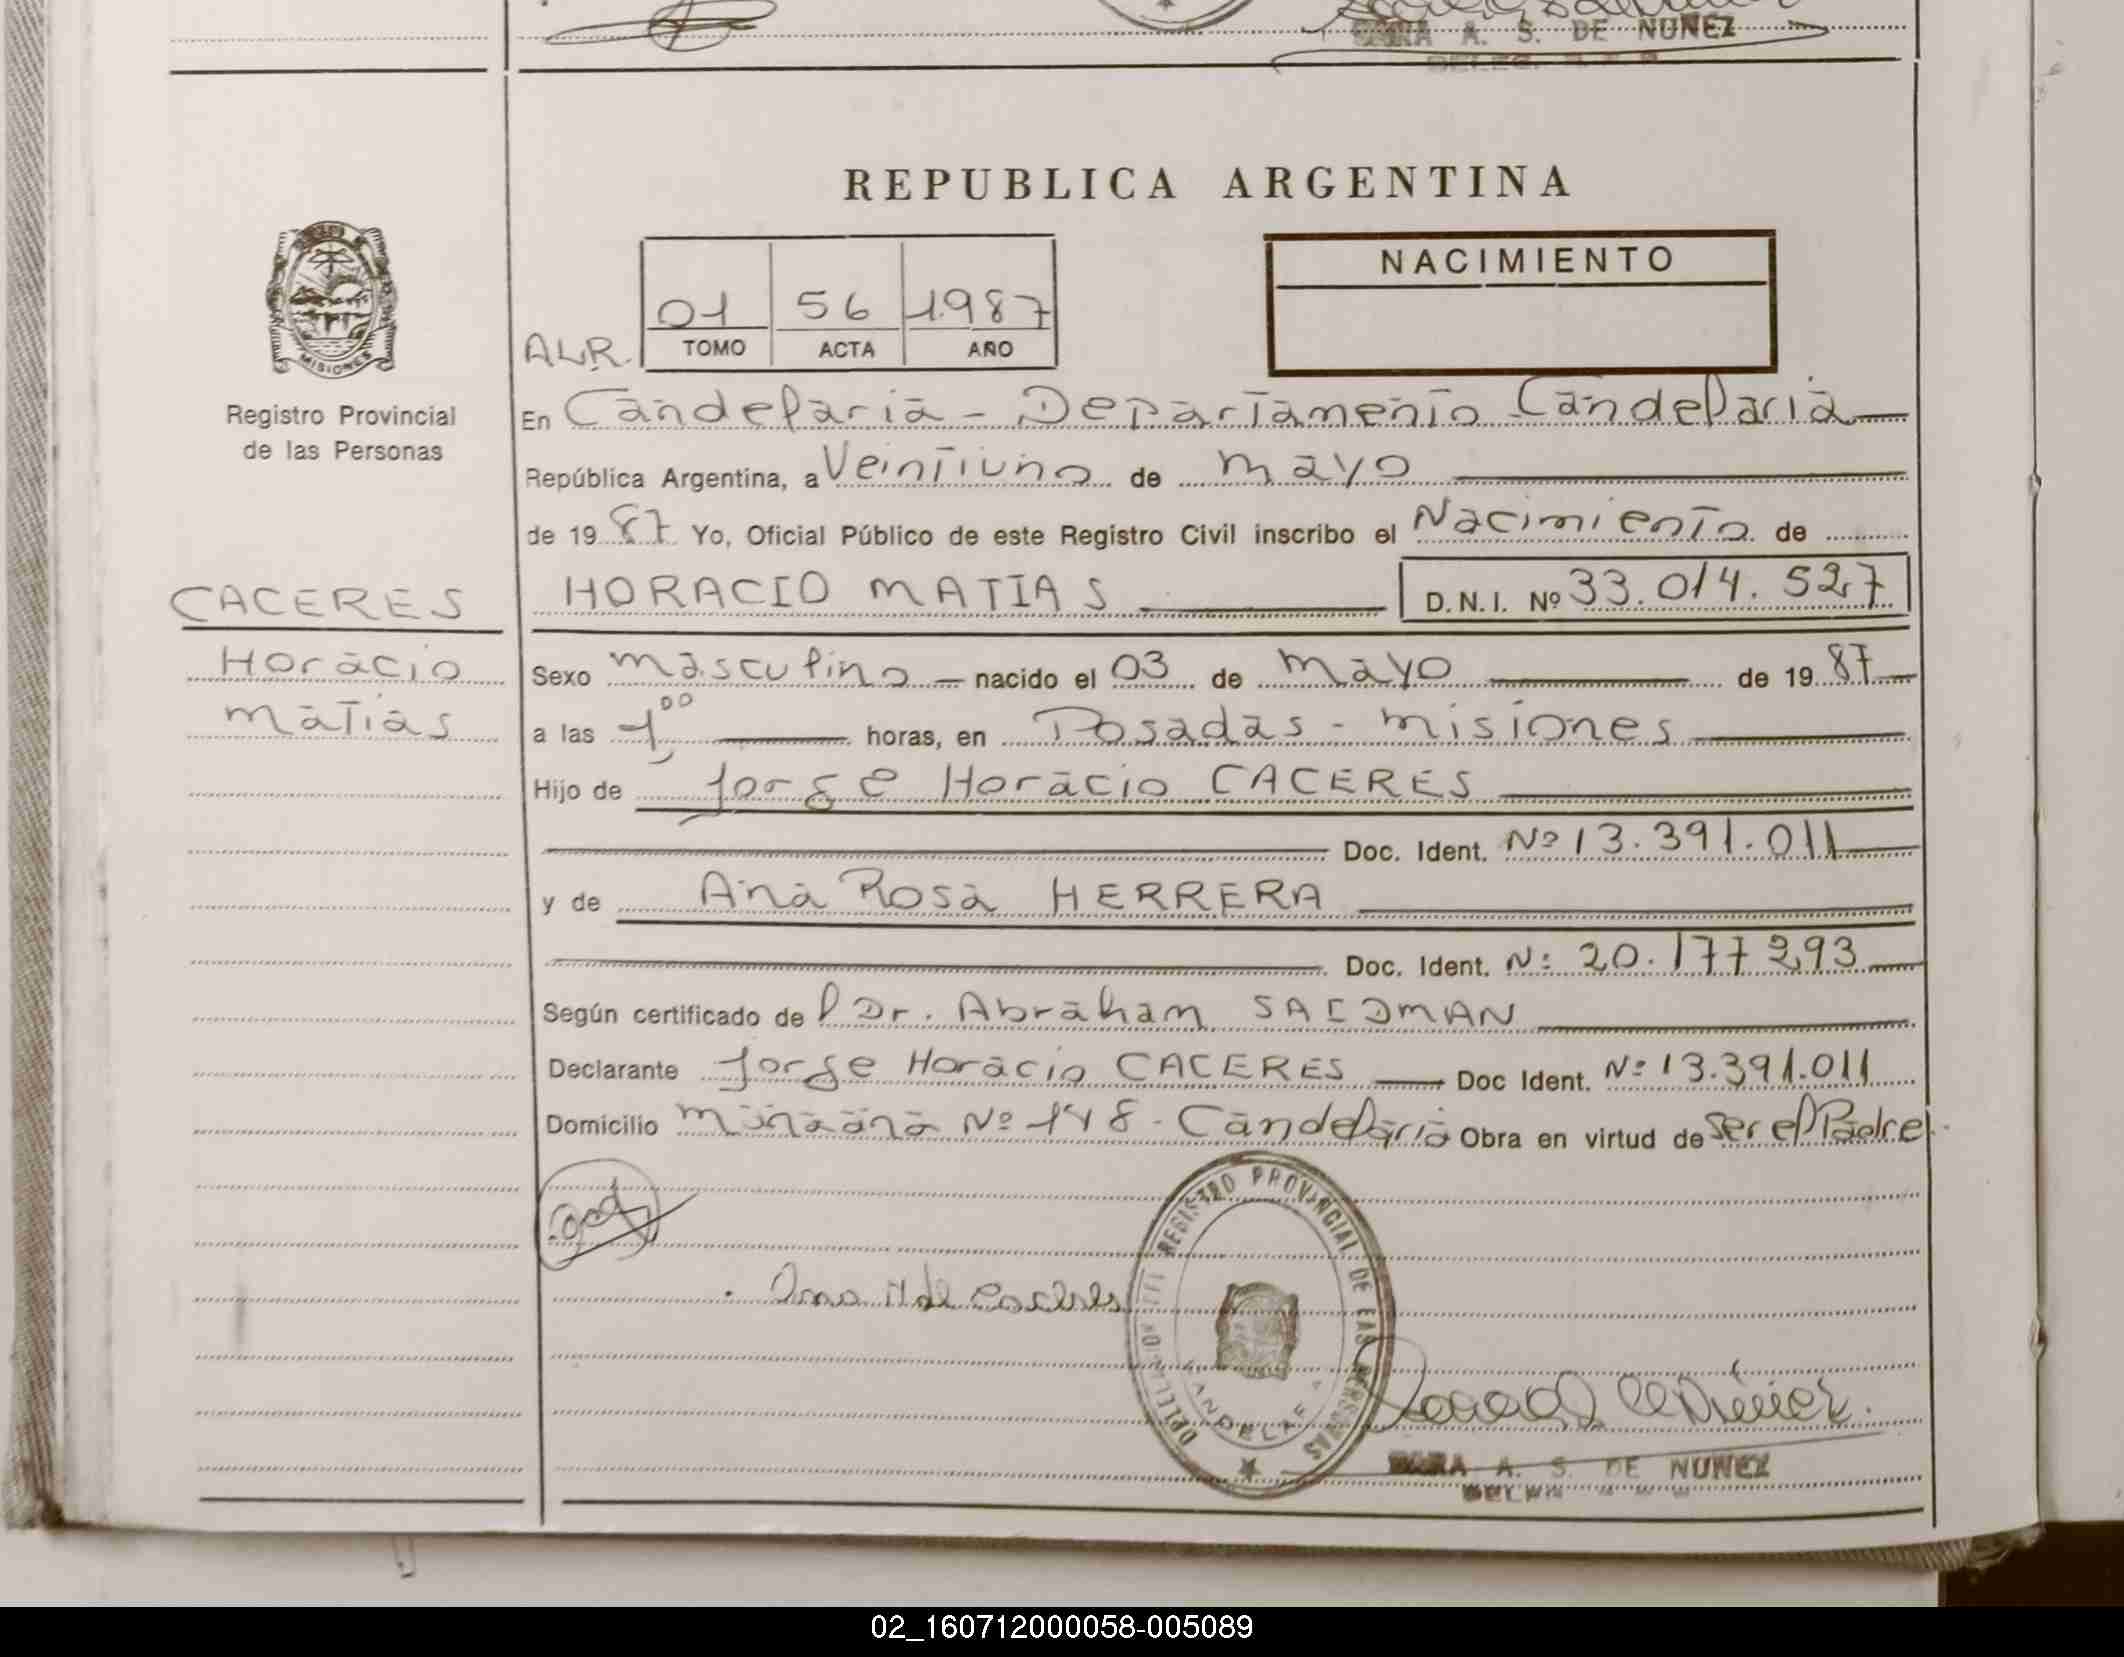 SARA A. S. DE NUÑEZ
REPUBLICA ARGENTINA
NACIMIENTO
01 56 1.987
TOMO ACTA AÑO
MISIONES
Registro Provincial
de las Personas
En Candelaria - Departamento Candelaria
República Argentina, a Veintiuno de mayo
de 19 87 Yo, Oficial Público de este Registro Civil inscribo el Nacimiento de
CACERES
Horacio
Matias
HORACIO MATIAS D.N.I. Nº 33.014.527
Sexo masculino nacido el 03 de mayo de 19 87
a las 1,00 horas, en Posadas - misiones
Hijo de Jorge Horacio CACERES
Doc. Ident. Nº 13.391.011
y de Ana Rosa HERRERA
Doc. Ident. Nº 20.177.293
Según certificado del Dr. Abraham SAIDMAN
Declarante Jorge Horacio CACERES Doc Ident. Nº 13.391.011
Domicilio Nº 148 - Candelaria Obra en virtud de Ser el Padre
REGISTRO PROVINCIAL DE LAS PERSONAS
SARA A. S. DE NUÑEZ
02_160712000058-005089